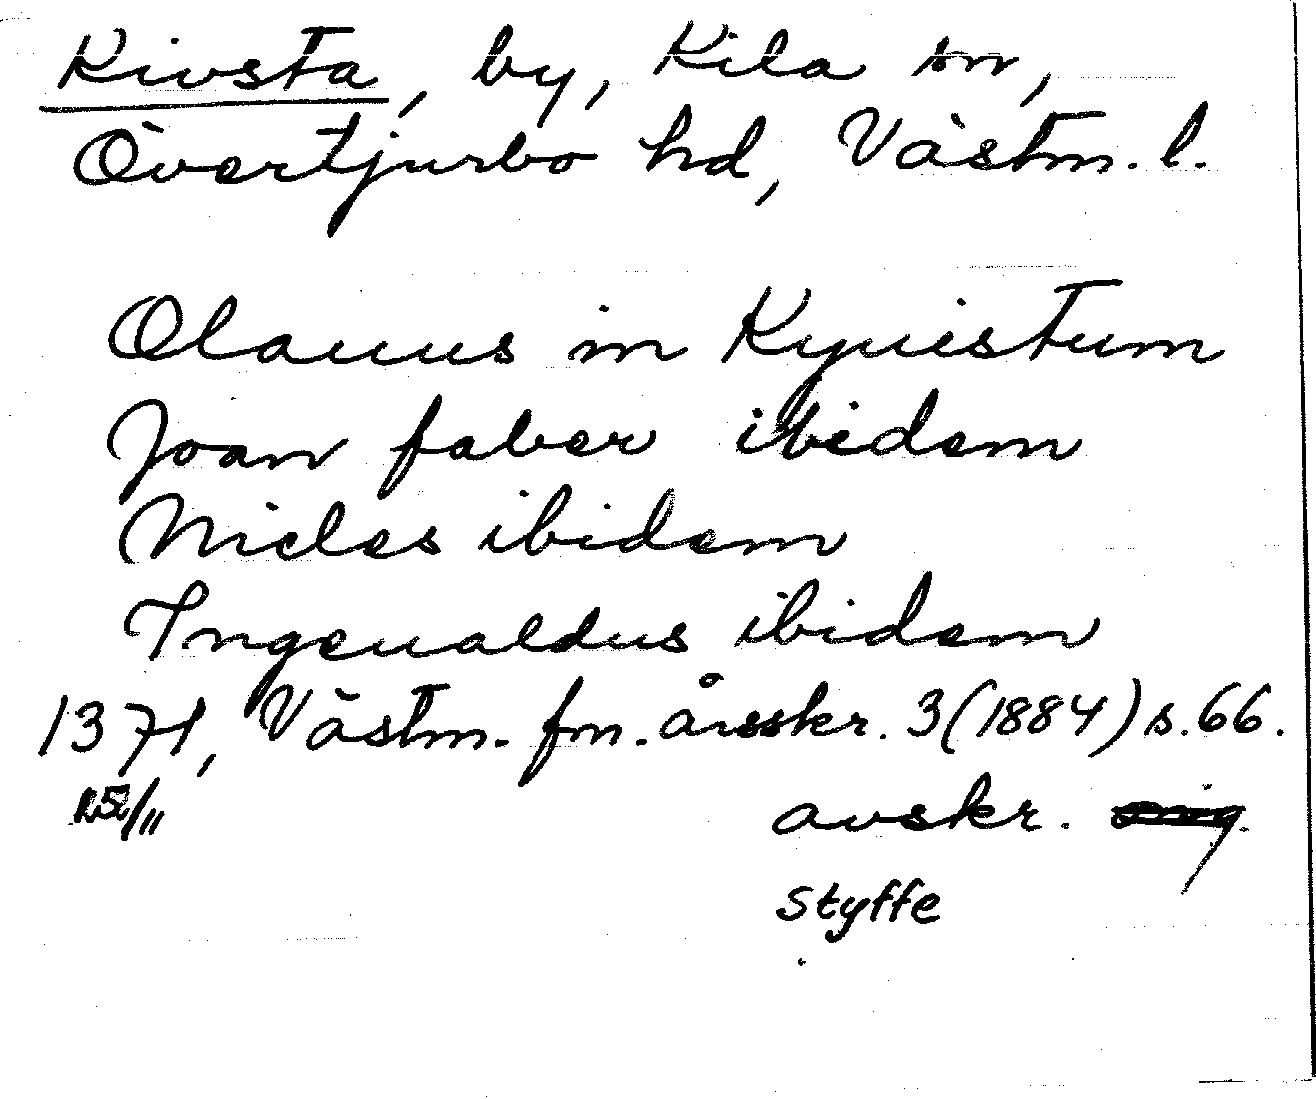 Kivsta, by, Kila sn,
Övertjurbo hd, Västm. l.
Olauus in Kyuistum
Joan faber ibidem
Niclas ibidem
Ingeualdus ibidem
1371, Västm. fm. årsskr. 3(1884) s. 66.
avskr.
Styffe